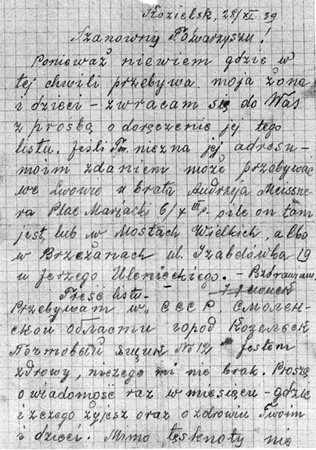 Kozielsk, 28/XI 39
Szanowny Towarzyszu!
Ponieważ niewiem gdzie w
tej chwili przebywa moja żona
i dzieci - zwracam się do Was
z prośbą o doręczenie jej tego
listu. Jeśli nie zna jej adresu -
moim zdaniem może przebywać
we Lwowie u brata Andrzeja Meissne-
ra Plac Marjacki 6/7 III p. o ile on tam
jest lub w Mostach Wielkich, albo
w Brzeżanach ul. Izabelówka 19
u Jerzego Ulenieckiego. -
Treść listu -
Przebywam w СССР Смолен-
ской области город Козельск
Почтовый ящик № 12 - jestem
zdrowy, niczego mi nie brak. Proszę
o wiadomość raz w miesiącu - gdzie
i z czego żyjesz oraz o zdrowiu Twoim
i dzieci. Mimo tęsknoty nie